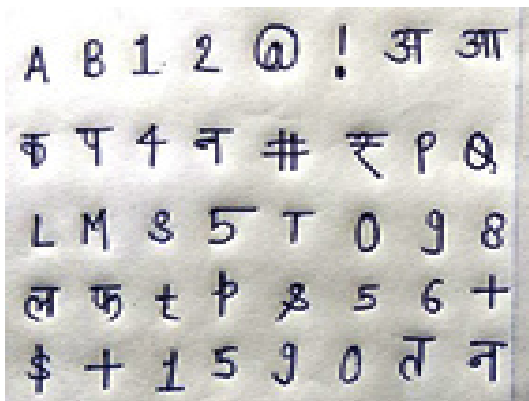 A B 1 2 @ ! अ आ
क प 4 न # ₹ P Q
L M & 5 T 0 9 8
ल फ t p & 5 6 +
$ + 1 5 9 0 त न